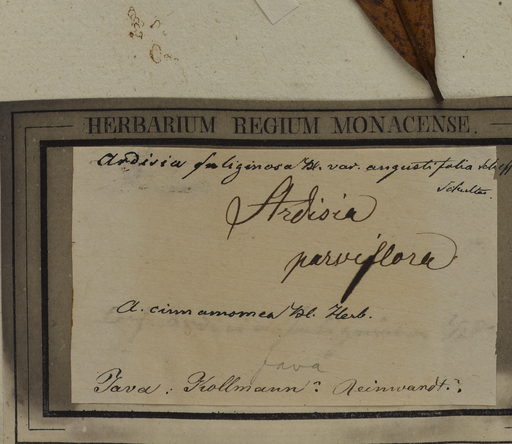 HERBARIUM REGIUM MONACENSE.
Ardisia fuliginosa Bl. var. angustifolia Scheff
Schultes.
Ardisia
parviflora
A. cinnamomea Bl. Herb.
Java
Java. Kollmann? Reinwardt?